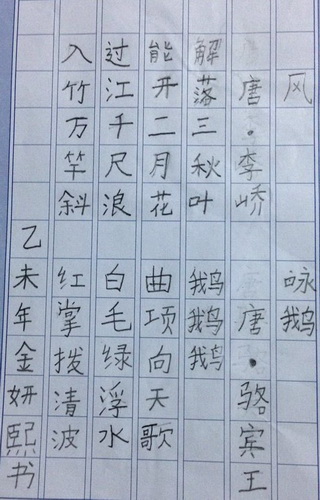 风
唐·李峤
解落三秋叶
能开二月花
过江千尺浪
入竹万竿斜
咏鹅
唐·骆宾王
鹅鹅鹅
曲项向天歌
白毛绿浮水
红掌拨清波
乙未年金妍熙书